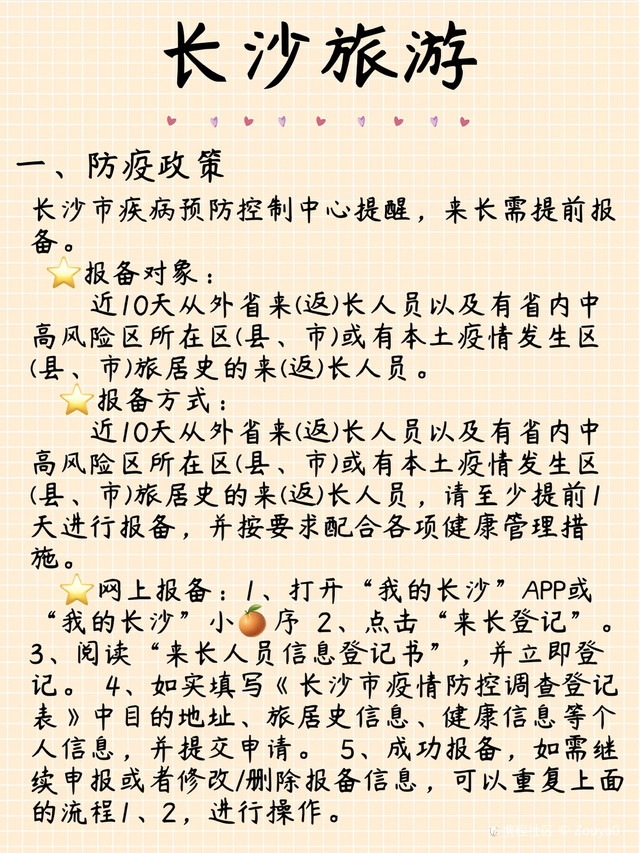 长沙旅游
一、防疫政策
长沙市疾病预防控制中心提醒，来长需提前报
备。
⭐报备对象：
近10天从外省来(返)长人员以及有省内中
高风险区所在区(县、市)或有本土疫情发生区
(县、市)旅居史的来(返)长人员。
⭐报备方式：
近10天从外省来(返)长人员以及有省内中
高风险区所在区(县、市)或有本土疫情发生区
(县、市)旅居史的来(返)长人员，请至少提前1
天进行报备，并按要求配合各项健康管理措
施。
⭐网上报备：1、打开“我的长沙”APP或
“我的长沙”小🍊序 2、点击“来长登记”。
3、阅读“来长人员信息登记书”，并立即登
记。 4、如实填写《长沙市疫情防控调查登记
表》中目的地址、旅居史信息、健康信息等个
人信息，并提交申请。 5、成功报备，如需继
续申报或者修改/删除报备信息，可以重复上面
的流程1、2，进行操作。